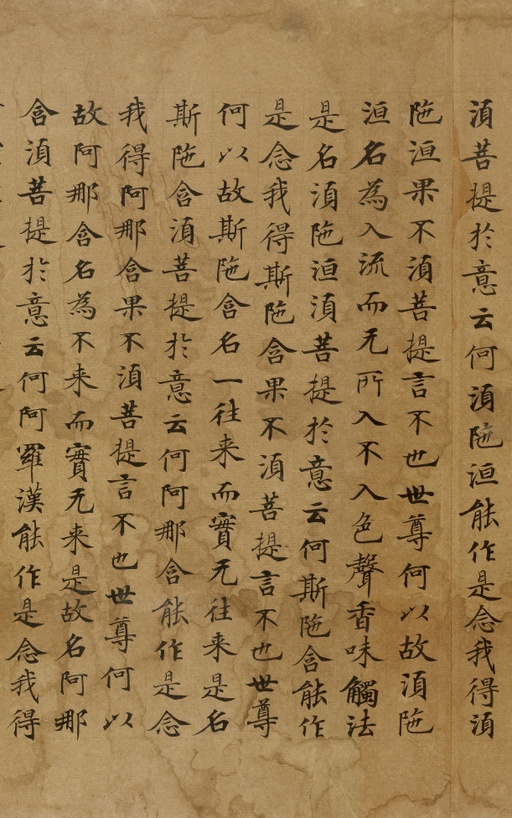 湏菩提扵意云何湏陁洹能作是念我得湏
陁洹果不湏菩提言不也世尊何以故湏陁
洹名為入流而无所入不入色聲香味觸法
是名湏陁洹湏菩提扵意云何斯陁含能作
是念我得斯陁含果不湏菩提言不也世尊
何以故斯陁含名一往来而實无往来是名
斯陁含湏菩提扵意云何阿那含能作是念
我得阿那含果不湏菩提言不也世尊何以
故阿那含名為不来而實无来是故名阿那
含湏菩提扵意云何阿羅漢能作是念我得